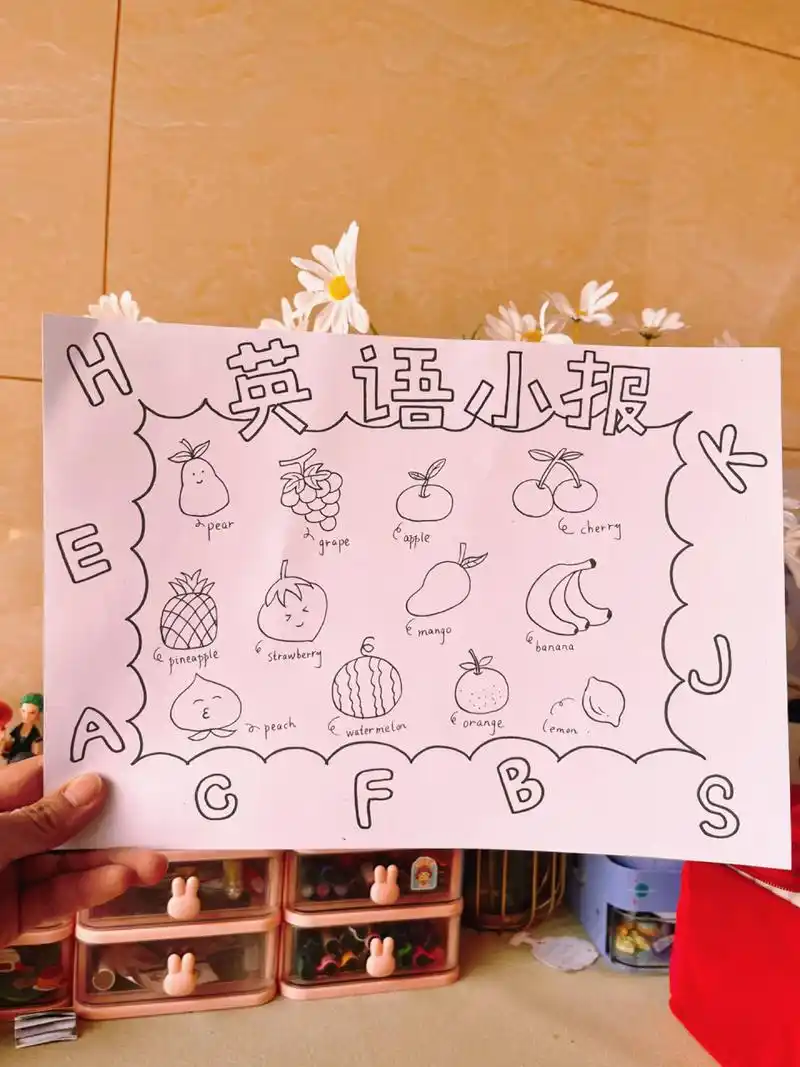 英语小报
H
K
pear
grape
apple
cherry
E
pineapple
strawberry
mango
banana
J
peach
watermelon
orange
lemon.
A
C
F
B
S